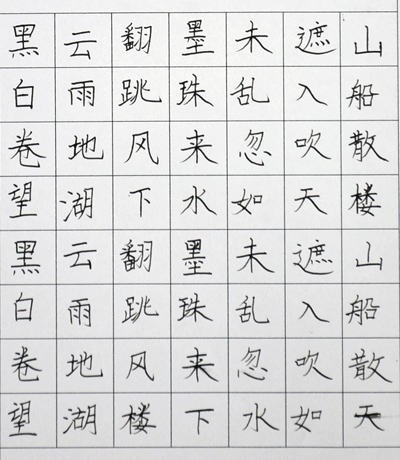 黑云翻墨未遮山
白雨跳珠乱入船
卷地风来忽吹散
望湖下水如天楼
黑云翻墨未遮山
白雨跳珠乱入船
卷地风来忽吹散
望湖楼下水如天